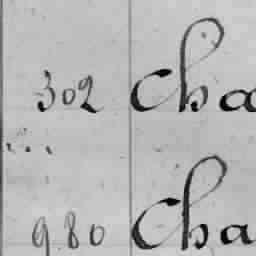 302 Cha
980 Cha